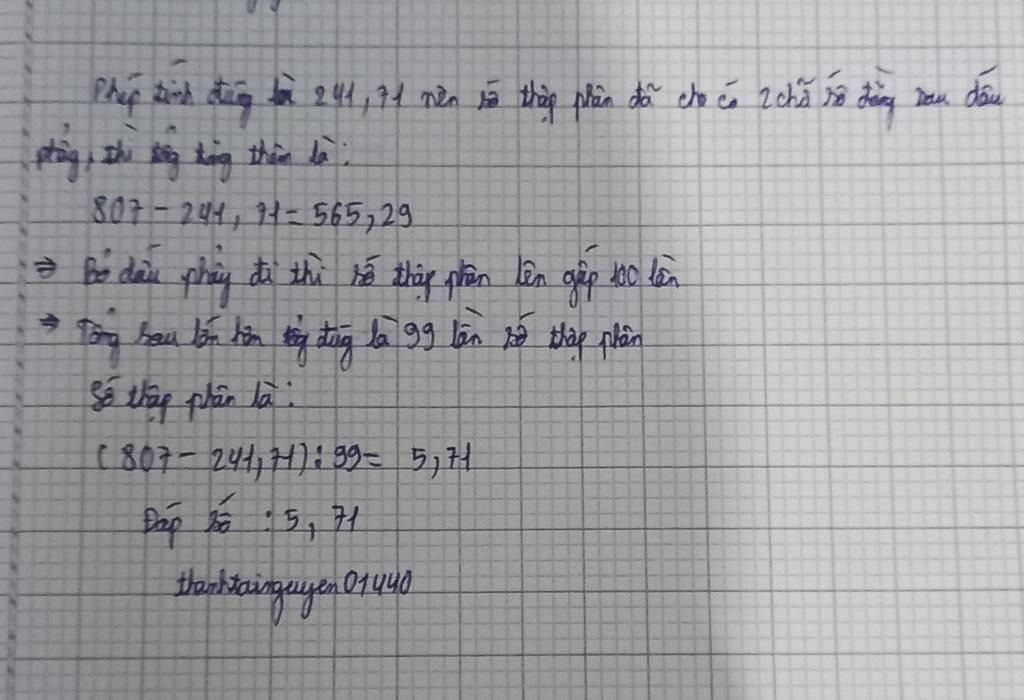 Phép tính đúng là 241,71 nên số thập phân đã cho có 2 chữ số đứng sau dấu
phẩy, thì tổng tăng thêm là:
807 - 241,71 = 565,29
⇒ Bỏ dấu phẩy đi thì số thập phân lên gấp 100 lần
⇒ Tổng sau lớn hơn tổng đúng là 99 lần số thập phân
Số thập phân là:
(807 - 241,71) : 99 = 5,71
Đáp số : 5,71
thanhtainguyen01440